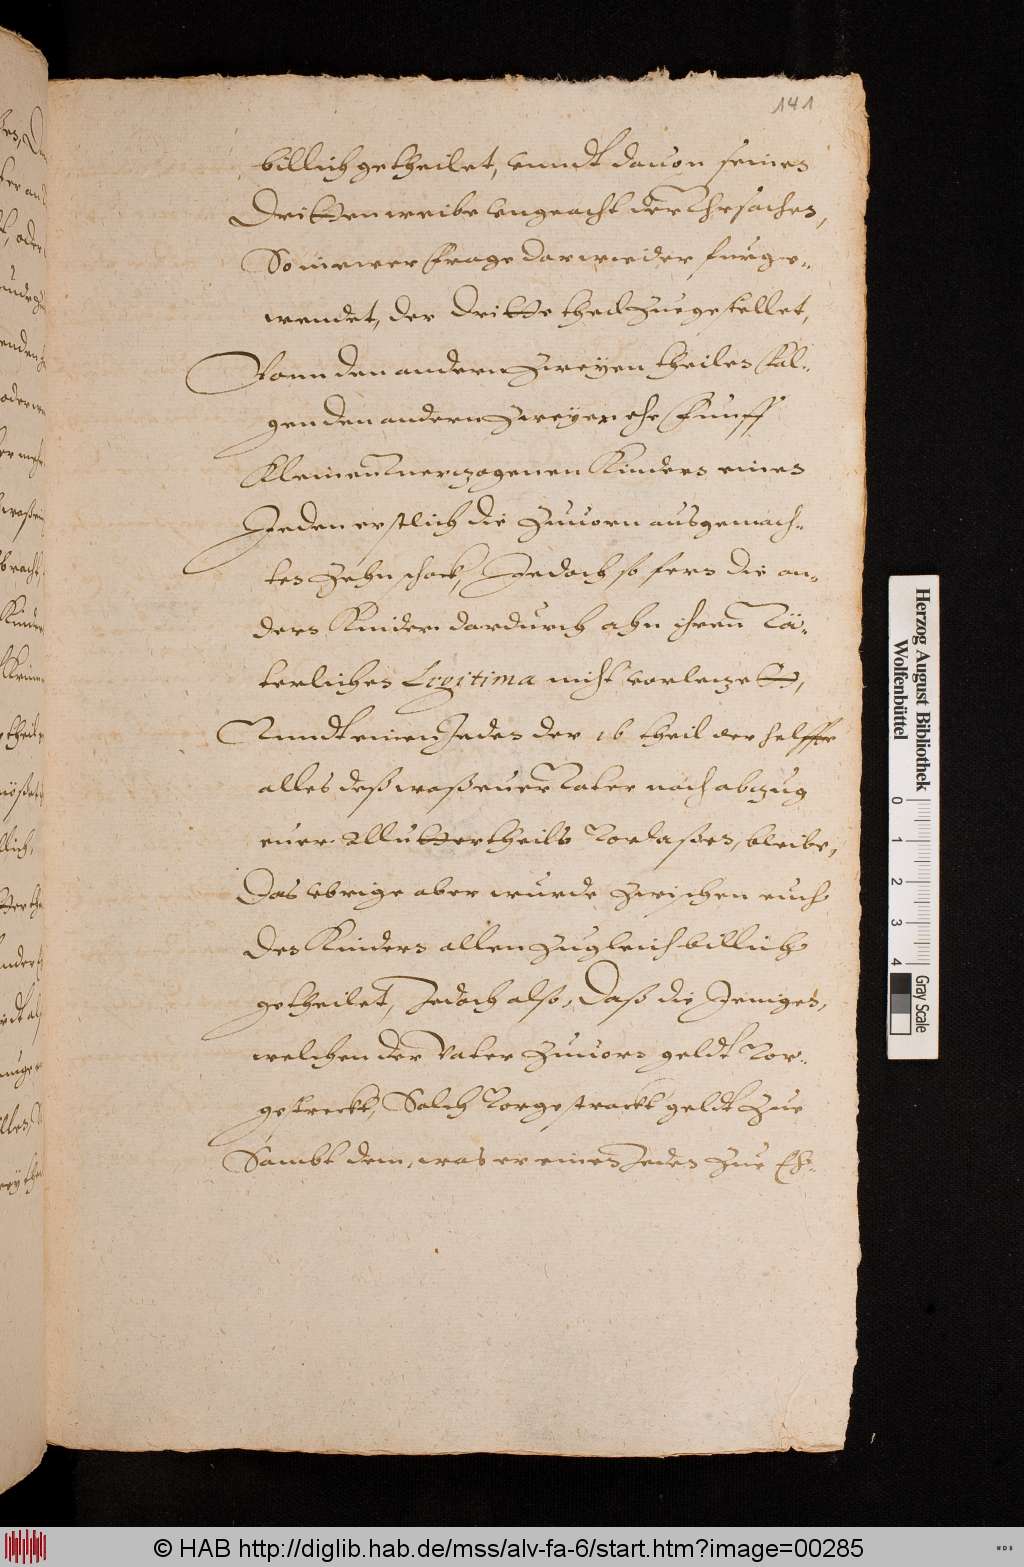 141
billich getheilet, vnndt dauon seines
Dritten weibe vngeacht der Vhrsachen,
So in ewer Frage darwieder furge-
wendet, der dritte theil zuegestellet,
Vonn den andern zweyen theilen Fol-
gen den andern zweyer ehe Funff
Kleinen Vnerzogenen Kindern eines
Jeden erstlich die zuuorn ausgemach-
ten zehn schock, Jedoch so fern die an-
dern Kinder dardurch ahn ihren Vä-
terlichen Legitima nicht vorlezett,
Vnndt einen Jeden der 16 theil der helffte
alles deß waß euer Vater nach abzug
euer Muttertheils Vorlaßen, bleibe,
Das vbrige aber wurde zwischen euch
den Kindern allen zugleich billich
getheilet, Jedoch also, Daß die Jenigen,
welchen der Vater zuuorn geldt Vor-
gestreckt, Solch Vorgestrackt geldt zue
Sambt dem, was er einen Jeden zue Eh-
Herzog August Bibliothek
Wolfenbüttel
0 1 2 3 4
Gray Scale
© HAB http://diglib.hab.de/mss/alv-fa-6/start.htm?image=00285